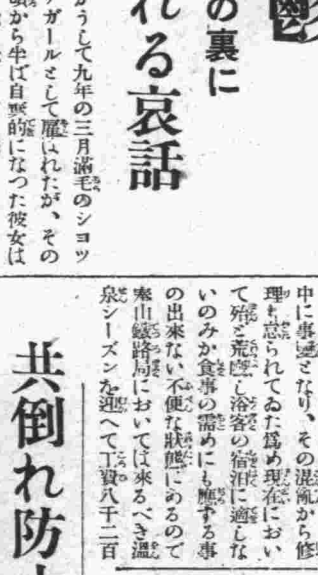 の裏に
れる哀話
かうして九年の三月滿毛のショツ
ガールとして雇はれたが、その
から半ば自暴的になつた彼女は
中に事變となり、その混亂から修
理も怠られてゐた爲め現在におい
て殆ど荒廢し浴客の宿泊に適しな
いのみか食事の需めにも應ずる事
の出來ない不便な狀態にあるので
奉山鐵路局においては來るべき溫
泉シーズンを迎へて工費八千二百
共倒れ防